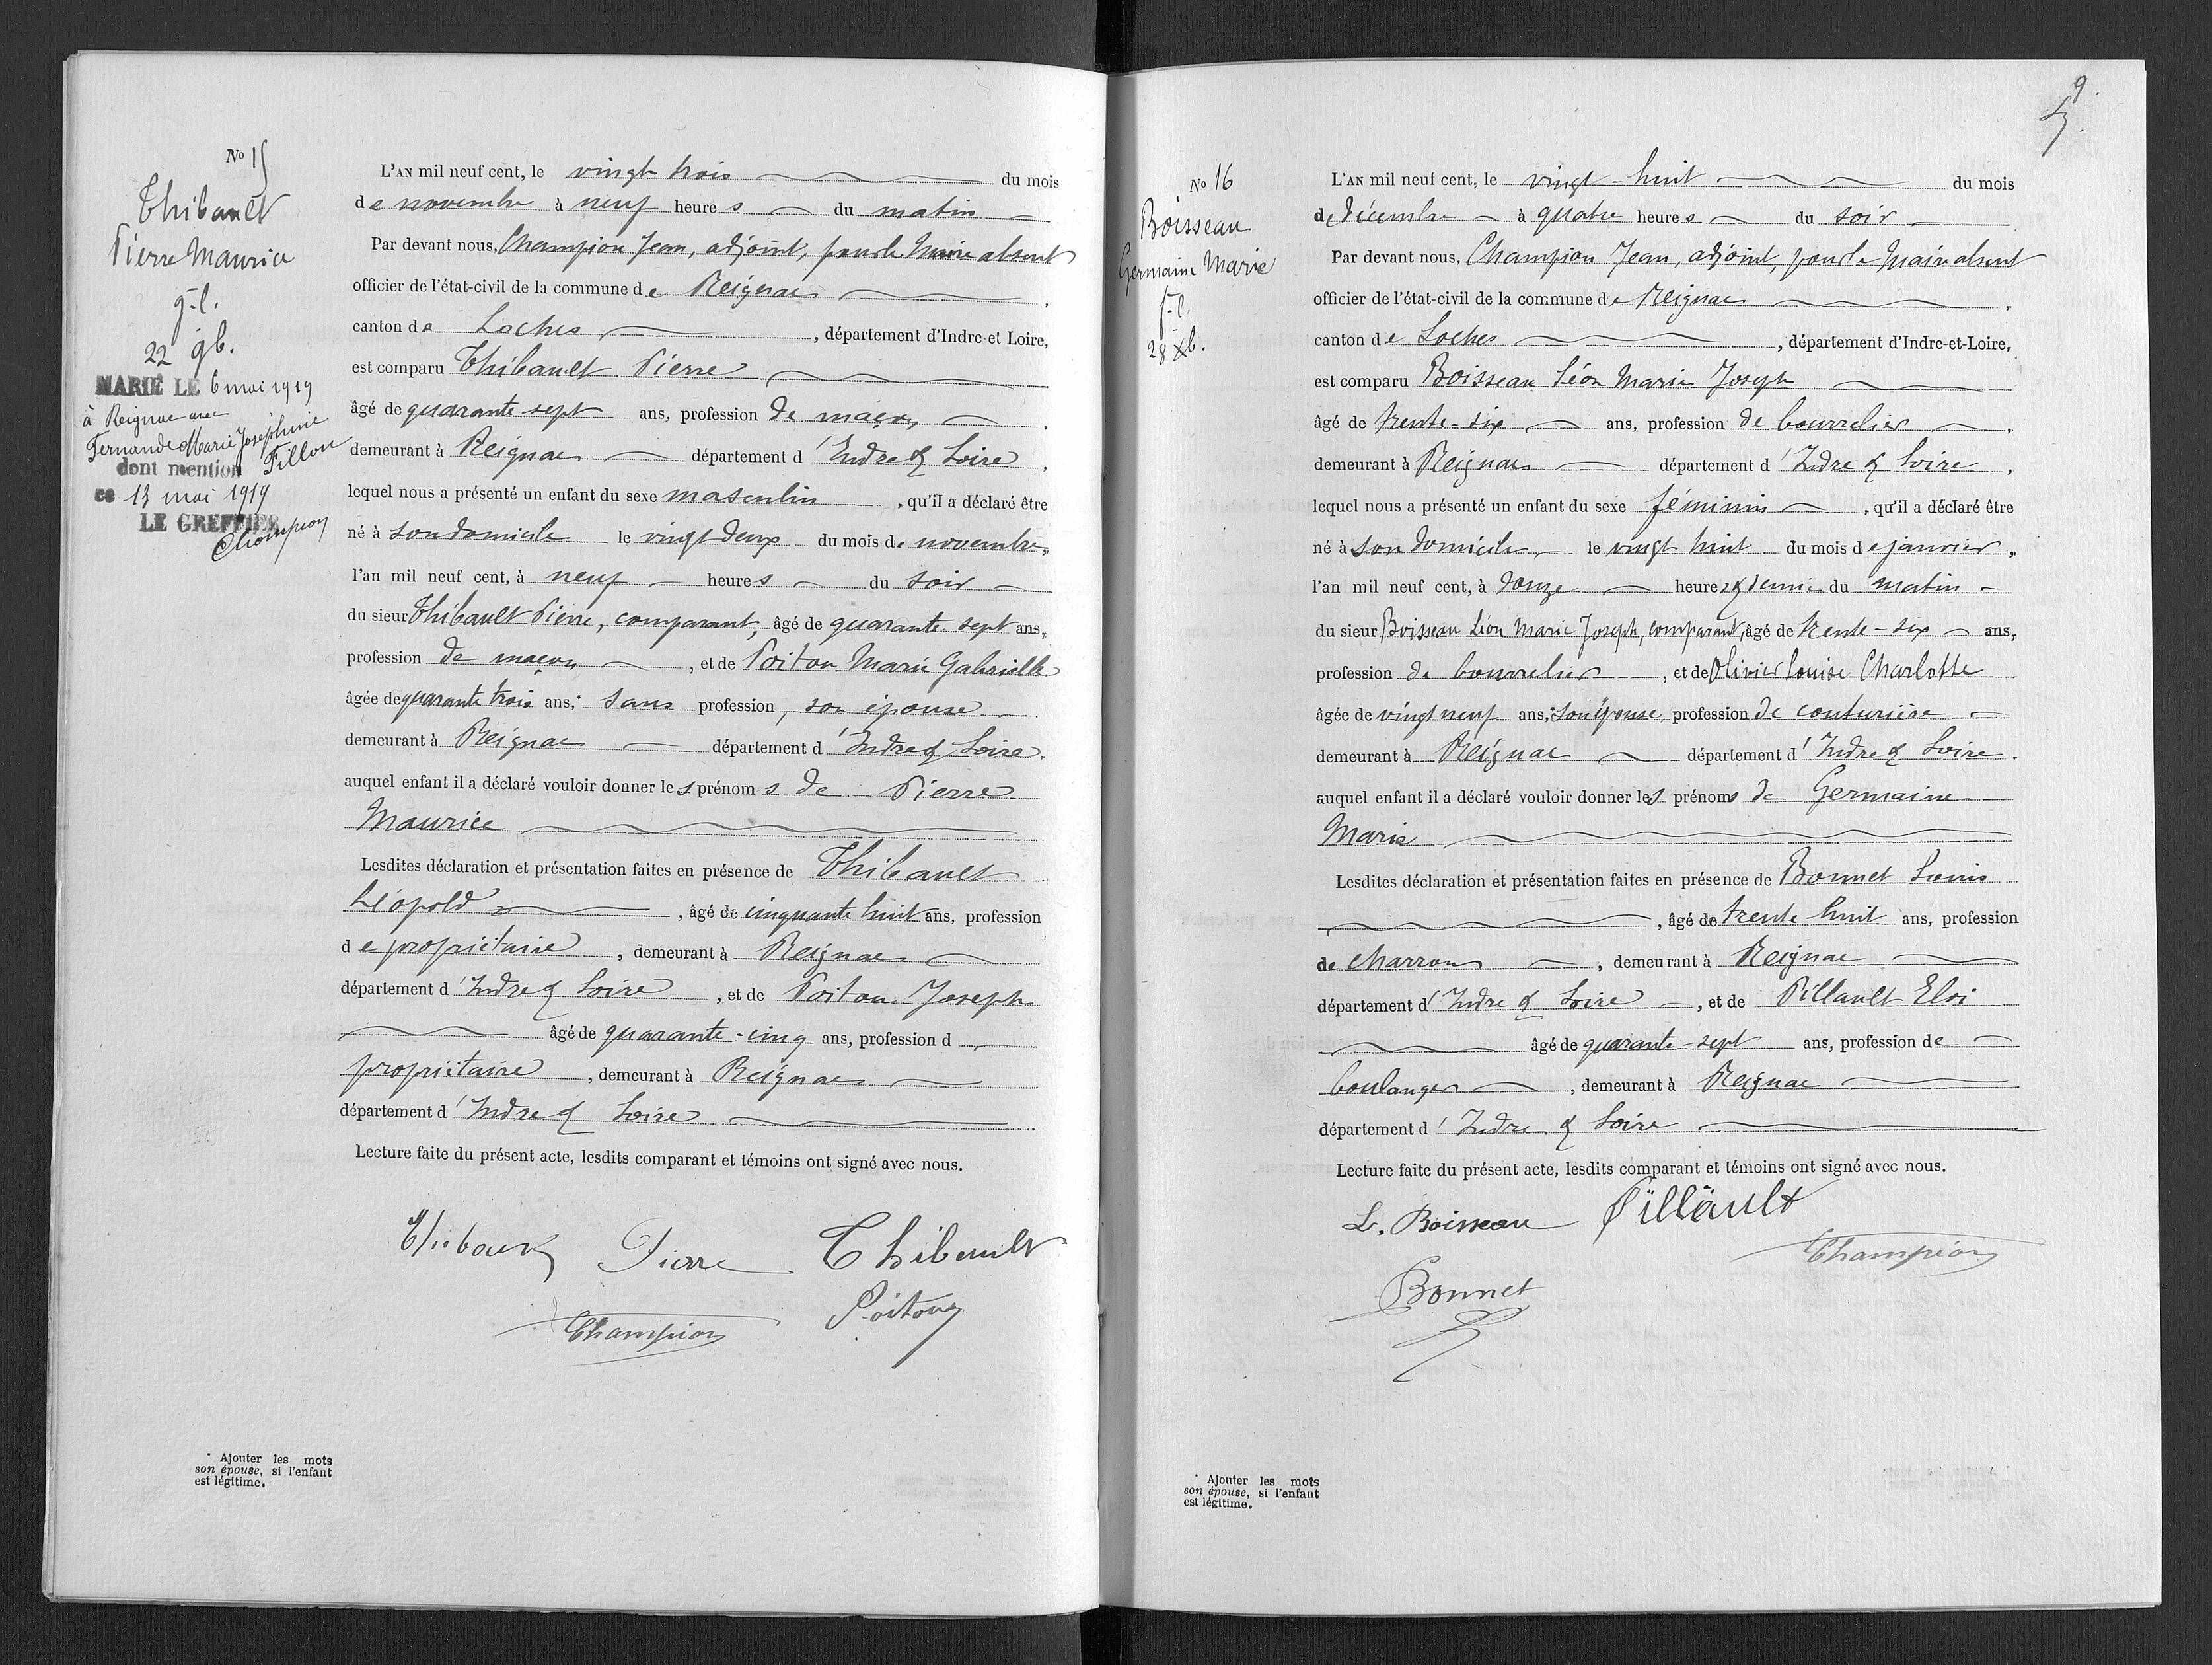 No 15
Thibault
Pierre Maurice
g. l.
22 9b.
MARIÉ LE 6 mai 1919
à Reignac avec
Fernande Marie Joséphine
Fillon
dont mention
ce 13 mai 1919
LE GREFFIER
Champion
L'AN mil neuf cent, le vingt trois du mois
de novembre à neuf heures du matin
Par devant nous, Champion Jean, adjoint, pour le Maire absent
officier de l'état-civil de la commune de Reignac
canton de Loches, département d'Indre-et Loire,
est comparu Thibault Pierre
âgé de quarante sept ans, profession de maçon
demeurant à Reignac département d'Indre & Loire,
lequel nous a présenté un enfant du sexe masculin, qu'il a déclaré être
né à son domicile le vingt deux du mois de novembre,
l'an mil neuf cent, à neuf heures du soir
du sieur Thibault Pierre, comparant, âgé de quarante sept ans,
profession de maçon, et de Poitou Marie Gabrielle
âgée de quarante trois ans;* sans profession, son épouse
demeurant à Reignac département d'Indre & Loire.
auquel enfant il a déclaré vouloir donner les prénoms de Pierre
Maurice
Lesdites déclaration et présentation faites en présence de Thibault
Léopold, âgé de cinquante huit ans, profession
de propriétaire, demeurant à Reignac
département d'Indre & Loire, et de Poitou Joseph
âgé de quarante-cinq ans, profession d
propriétaire, demeurant à Reignac
département d'Indre & Loire
Lecture faite du présent acte, lesdits comparant et témoins ont signé avec nous.
Thibault Pierre Thibault
Champion Poitou
* Ajouter les mots
son épouse, si l'enfant
est légitime.
9
No 16
Boisseau
Germaine Marie
f. l.
28 Xb.
L'AN mil neuf cent, le vingt-huit du mois
de Décembre à quatre heures du soir
Par devant nous, Champion Jean, adjoint, pour le Maire absent
officier de l'état-civil de la commune de Reignac
canton de Loches, département d'Indre-et-Loire,
est comparu Boisseau Léon Marie Joseph
âgé de trente-six ans, profession de bourrelier,
demeurant à Reignac département d'Indre & Loire,
lequel nous a présenté un enfant du sexe féminin, qu'il a déclaré être
né à son domicile, le vingt huit du mois de janvier,
l'an mil neuf cent, à douze heures & demie du matin
du sieur Boisseau Léon Marie Joseph, comparant, âgé de trente-six ans,
profession de bourrelier, et de Olivier Louise Charlotte
âgée de vingt neuf ans;* son épouse, profession de couturière
demeurant à Reignac département d'Indre & Loire.
auquel enfant il a déclaré vouloir donner les prénoms de Germaine
Marie
Lesdites déclaration et présentation faites en présence de Bonnet Louis
, âgé de trente huit ans, profession
de charron, demeurant à Reignac
département d'Indre & Loire, et de Pillault Eloi
âgé de quarante-sept ans, profession de
boulanger, demeurant à Reignac
département d'Indre & Loire
Lecture faite du présent acte, lesdits comparant et témoins ont signé avec nous.
L. Boisseau Pillault
Champion
Bonnet
* Ajouter les mots
son épouse, si l'enfant
est légitime.